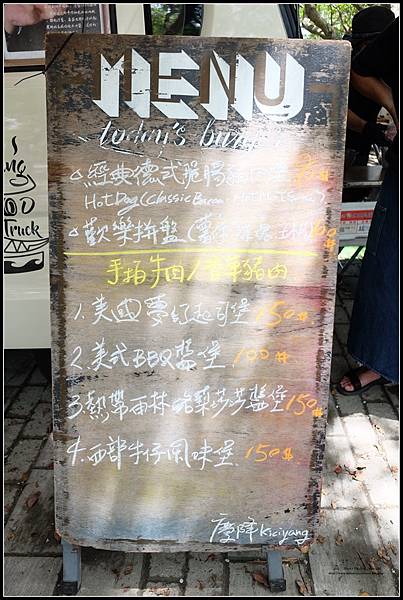 MENU
today's burger
經典德式脆腸
Hot Dog (Classic Bacon.
歡樂拼盤
手拍牛肉/香草豬肉
1. 美國夢幻起司堡 150元
2. 美式BBQ醬堡 100元
3. 熱帶雨林鳳梨莎莎醬堡 150元
4. 西部牛仔風味堡 150元
慶陣 Kiciyang
Truck